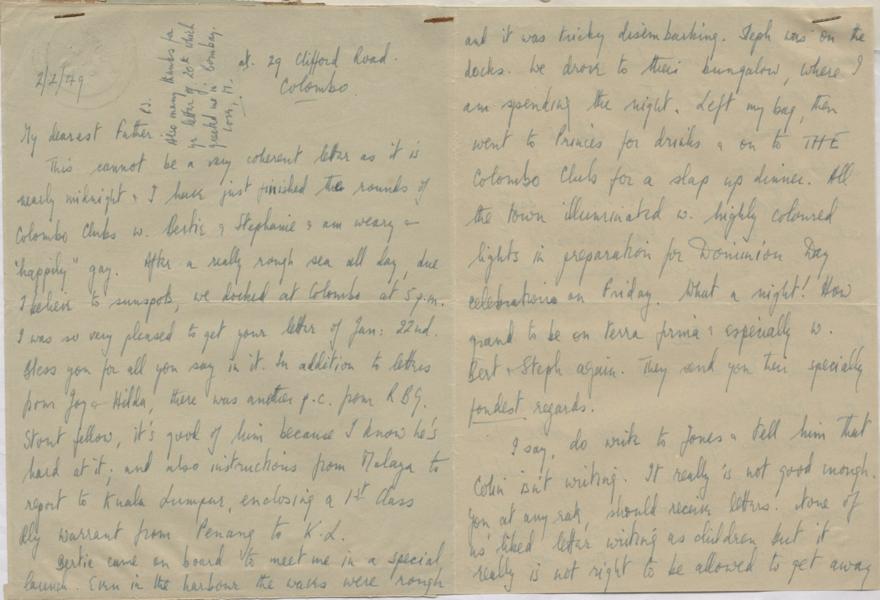 2/2/49
at. 29 Clifford Road.
Colombo.
P.S.
Also many thanks for
yr letter of 20th which
greeted me in Bombay.
Love, M.
My dearest Father
This cannot be a very coherent letter as it is
nearly midnight & I have just finished the rounds of
Colombo Clubs w. Bertie & Stephanie & am weary &
"happily" gay. After a really rough sea all day, due
I believe to sunspots, we docked at Colombo at 5 p.m.
I was so very pleased to get your letter of Jan: 22nd.
Bless you for all you say in it. In addition to letters
from Joy & Hilda, there was another p.c. from RBG.
Stout fellow, it's good of him because I know he's
hard at it; and also instructions from Malaya to
report to Kuala Lumpur, enclosing a 1st Class
Rly warrant from Penang to K.L.
Bertie came on board to meet me in a special
launch. Even in the harbour the waves were rough
and it was tricky disembarking. Steph was on the
docks. We drove to their bungalow, where I
am spending the night. Left my bag, then
went to Princes for drinks & on to THE
Colombo Club for a slap up dinner. All
the town illuminated w. highly coloured
lights in preparation for Dominion Day
celebrations on Friday. What a night! How
grand to be on terra firma & especially w.
Bert & Steph again. They send you their specially
fondest regards.
I say, do write to Jones & tell him that
Colin isn't writing. It really is not good enough.
You at any rate, should receive letters. None of
us liked letter writing as children but it
really is not right to be allowed to get away